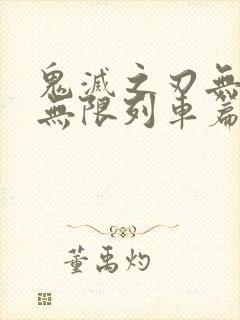 鬼滅之刃無
無限列車篇
董禹灼